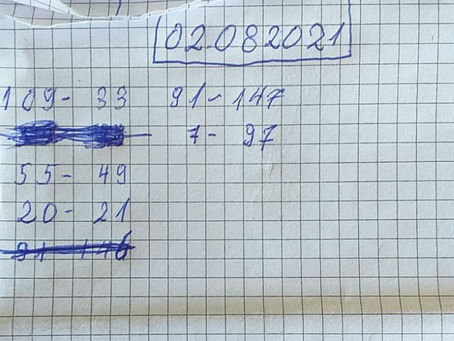 02.082021
109- 33 91-147
7- 97
55- 49
20- 21